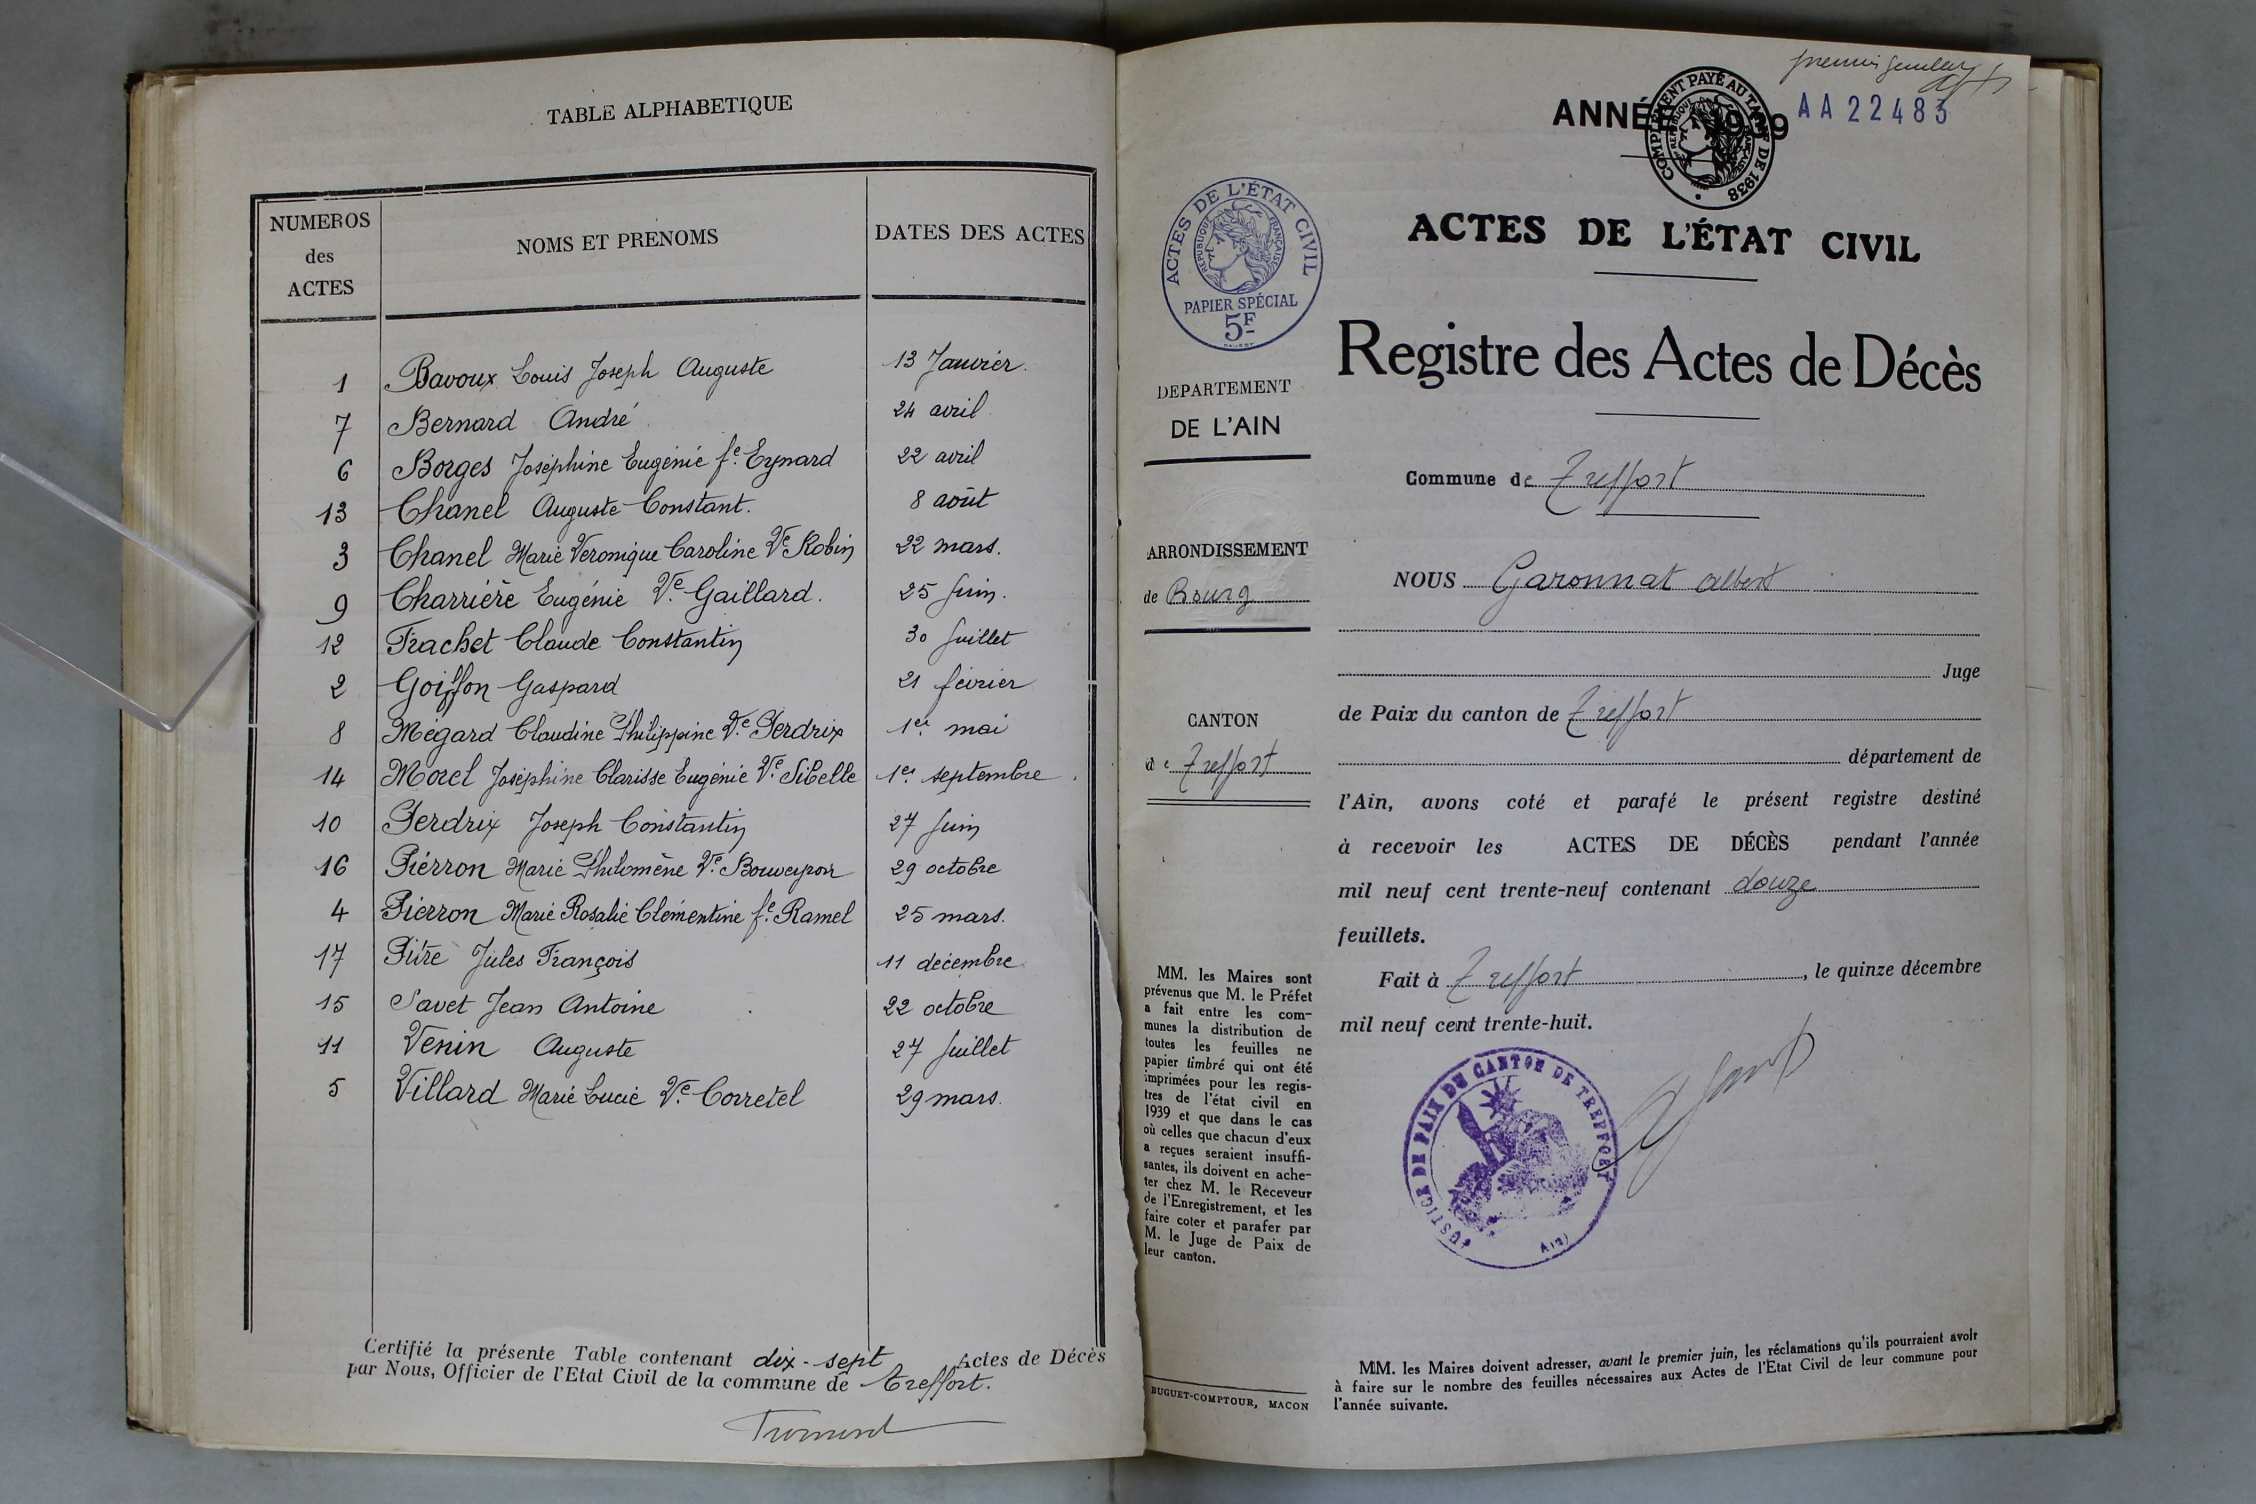 TABLE ALPHABETIQUE
NUMEROS
des
ACTES
NOMS ET PRENOMS
DATES DES ACTES
1 Bavoux Louis Joseph Auguste 13 Janvier.
7 Bernard André 24 avril
6 Borges Joséphine Eugénie fe. Eynard 22 avril
13 Chanel Auguste Constant. 8 août
3 Chanel Marie Veronique Caroline Ve Robin 22 mars.
9 Charrière Eugénie Ve. Gaillard. 25 Juin.
12 Trachet Claude Constantin 30 Juillet
2 Goiffon Gaspard 21 février
8 Mégard Claudine Philippine Ve. Perdrix 1er mai
14 Morel Joséphine Clarisse Eugénie Ve. Sibelle 1er septembre
10 Perdrix Joseph Constantin 27 Juin
16 Piérron Marie Philomène Ve. Bouveyron 29 octobre
4 Pierron Marie Rosalie Clémentine fe. Ramel 25 mars.
17 Pitre Jules François 11 décembre
15 Savet Jean Antoine 22 octobre
11 Venin Auguste 27 Juillet
5 Villard Marie Lucie Ve. Corretel 29 mars.
Certifié la présente Table contenant dix-sept Actes de Décès
par Nous, Officier de l'Etat Civil de la commune de Treffort.
premier
AA22483
ANNÉE 1939
COMPLÉMENT PAYÉ AU TARIF DE 1938
ACTES DE L'ÉTAT CIVIL
RÉPUBLIQUE FRANÇAISE
PAPIER SPÉCIAL
5F
ACTES DE L'ÉTAT CIVIL
Registre des Actes de Décès
DEPARTEMENT
DE L'AIN
ARRONDISSEMENT
de Bourg
CANTON
de Treffort
MM. les Maires sont
prévenus que M. le Préfet
a fait entre les com-
munes la distribution de
toutes les feuilles ne
papier timbré qui ont été
imprimées pour les regis-
tres de l'état civil en
1939 et que dans le cas
où celles que chacun d'eux
a reçues seraient insuffi-
santes, ils doivent en ache-
ter chez M. le Receveur
de l'Enregistrement, et les
faire coter et parafer par
M. le Juge de Paix de
leur canton.
BUGUET-COMPTOUR, MACON
Commune de Treffort
NOUS Garonnat Albert
Juge
de Paix du canton de Treffort
département de
l'Ain, avons coté et parafé le présent registre destiné
à recevoir les ACTES DE DÉCÈS pendant l'année
mil neuf cent trente-neuf contenant douze
feuillets.
Fait à Treffort, le quinze décembre
mil neuf cent trente-huit.
JUSTICE DE PAIX DU CANTON DE TREFFORT
Ain
MM. les Maires doivent adresser, avant le premier juin, les réclamations qu'ils pourraient avoir
à faire sur le nombre des feuilles nécessaires aux Actes de l'Etat Civil de leur commune pour
l'année suivante.